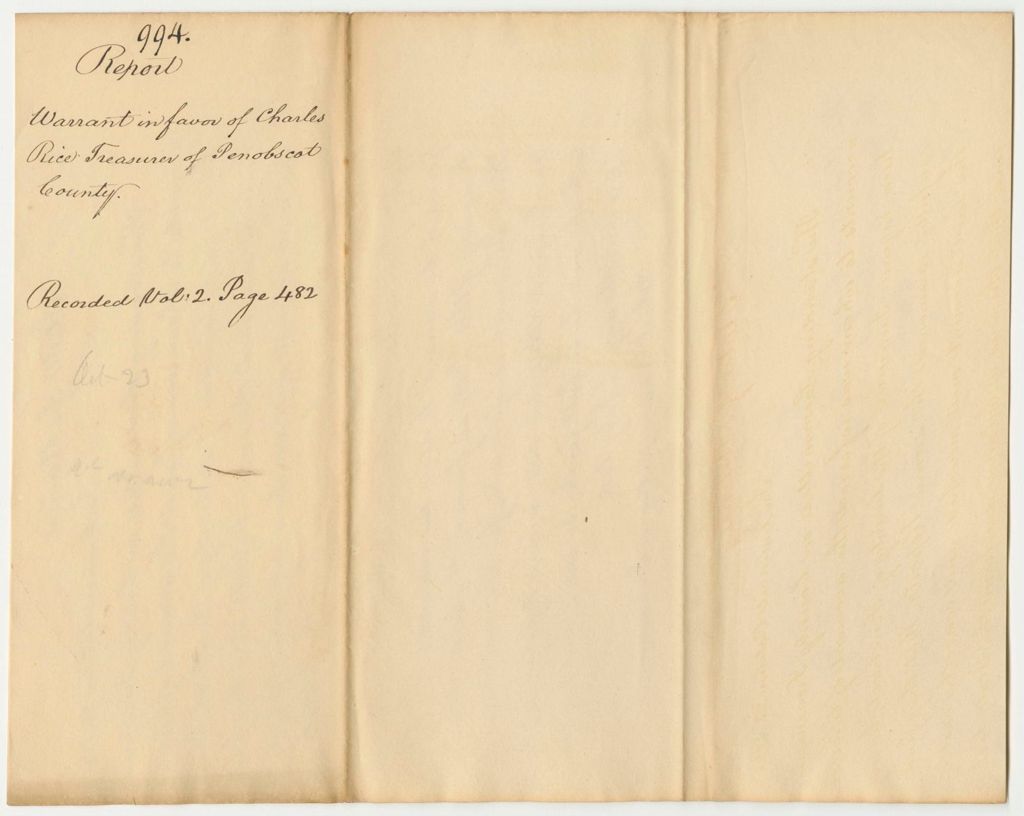 994.
Report
Warrant in favor of Charles
Rice Treasurer of Penobscot
County.
Recorded Vol: 2. Page 482
Oct 23